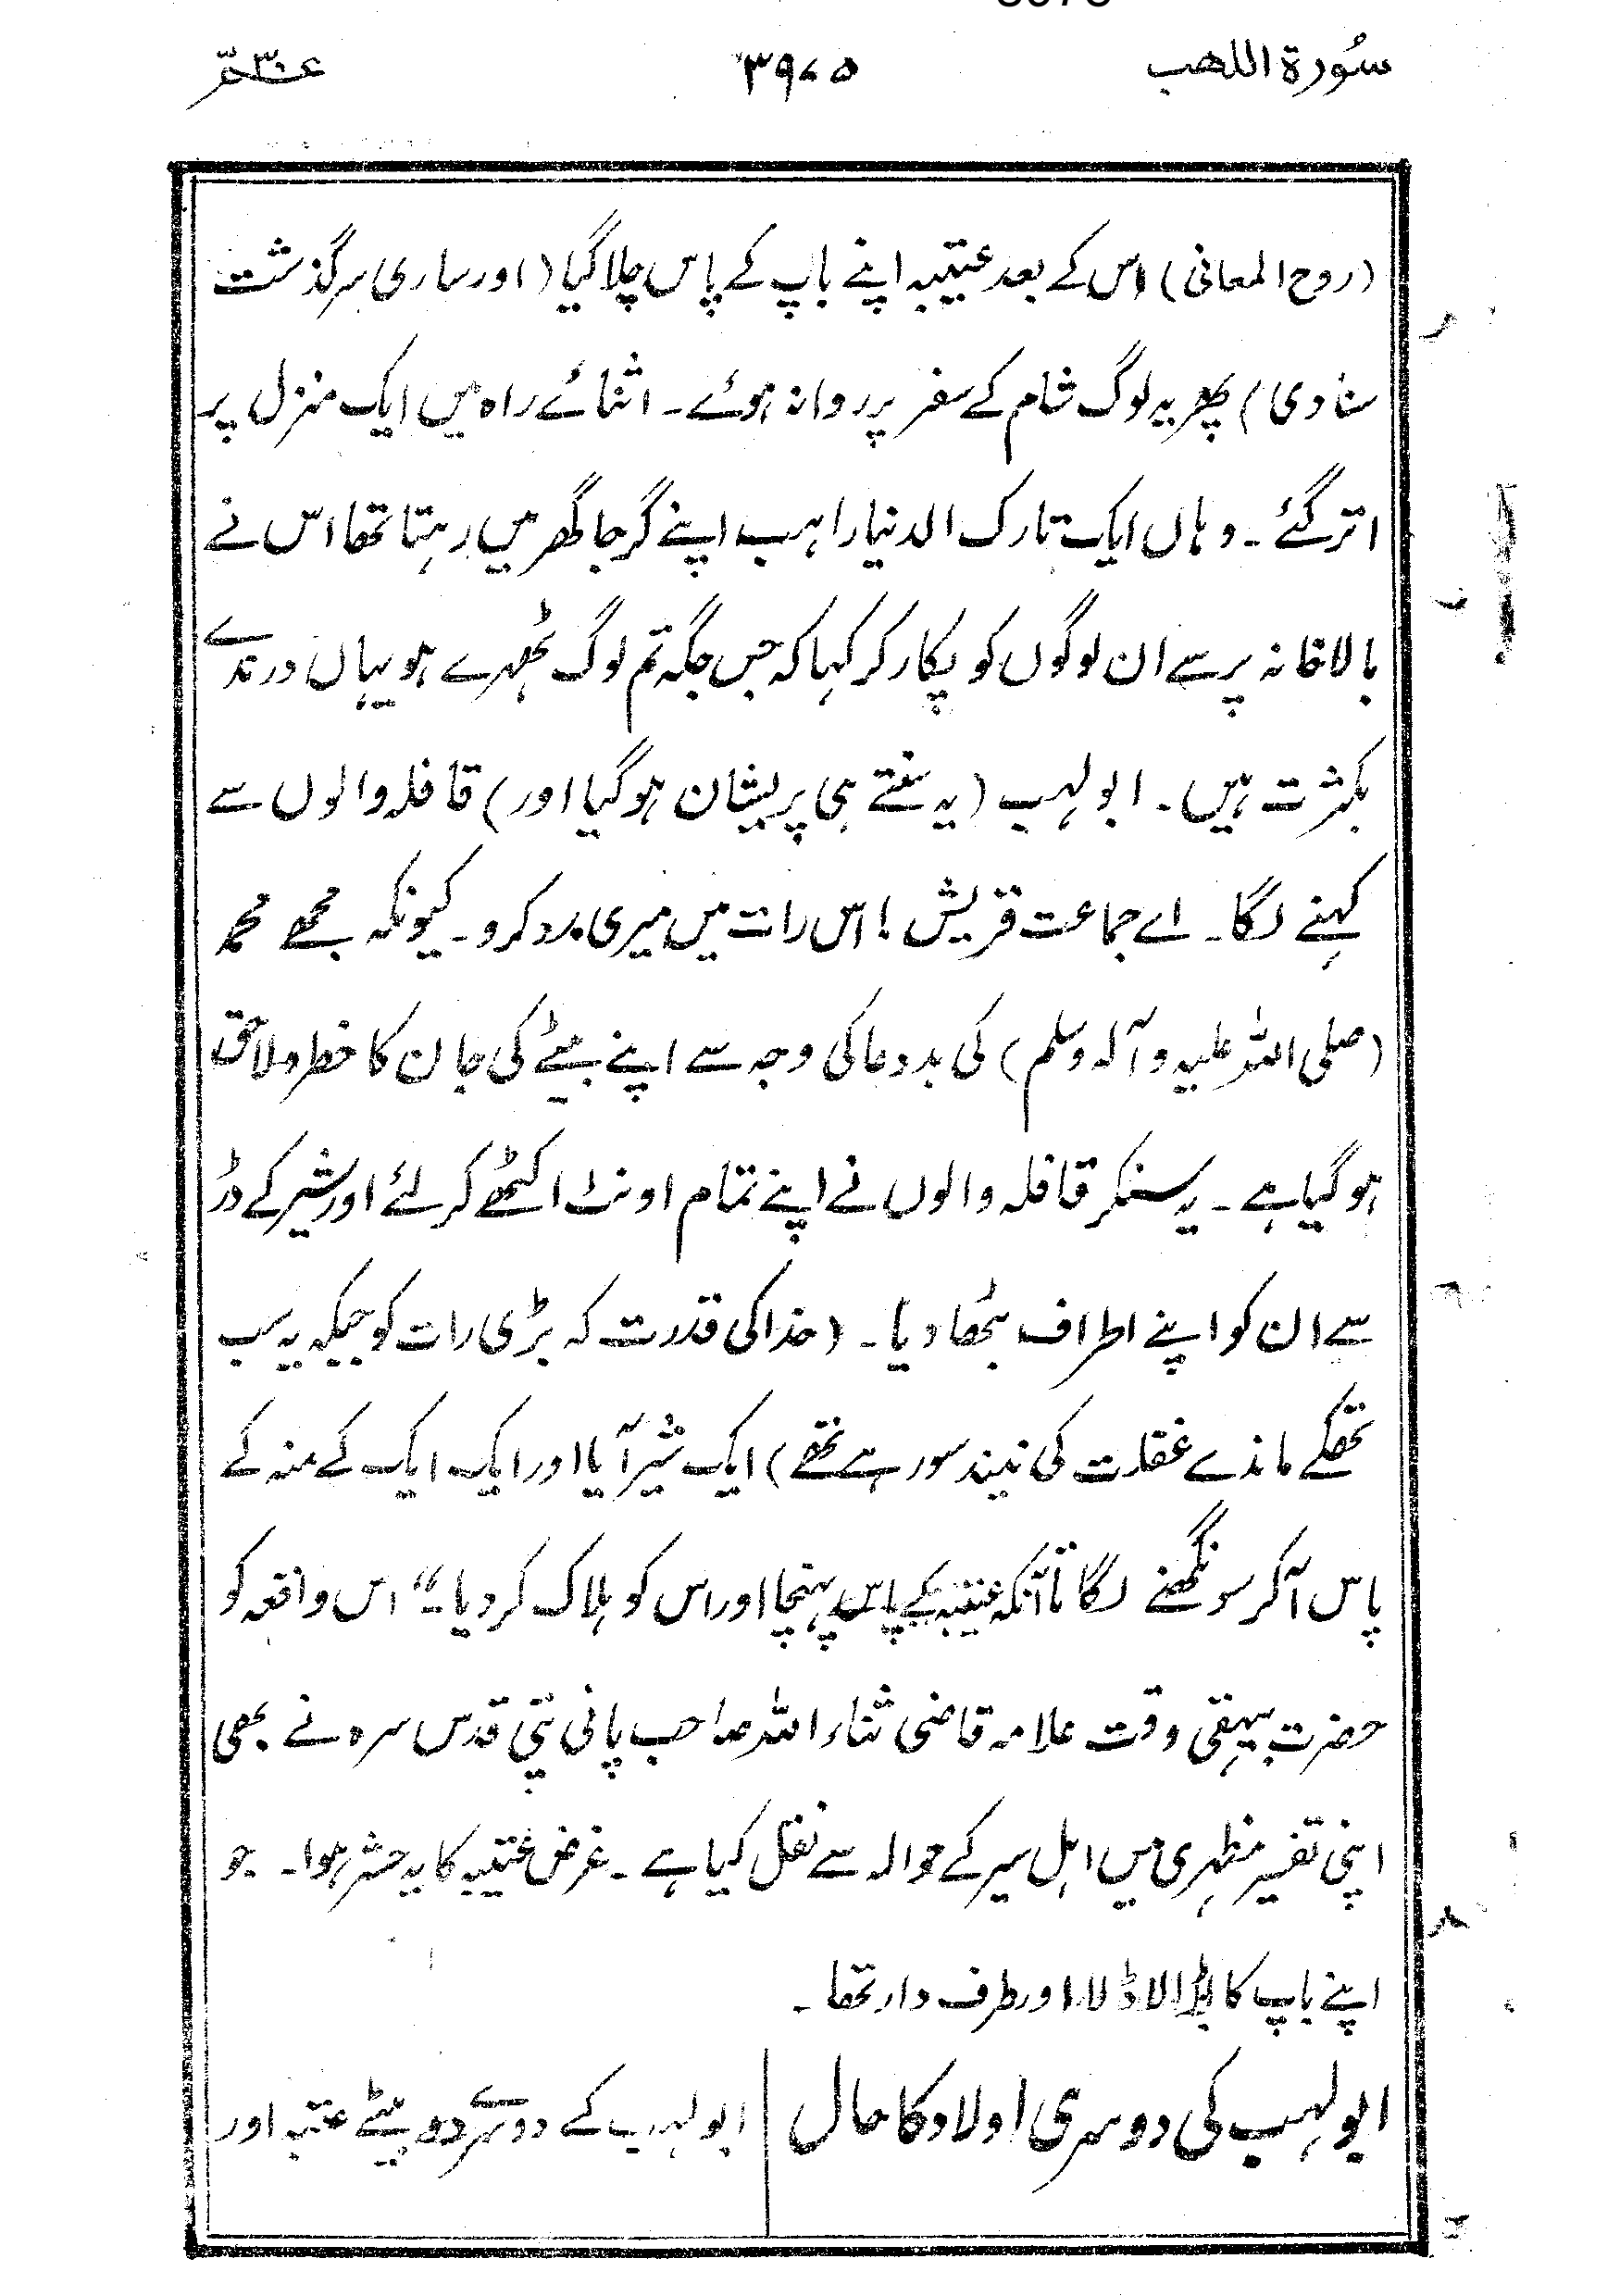 سُورۃ اللھب ۳۹۷۵ عـــم ۳۰
(روح المعانی) اس کے بعد عتیبہ اپنے باپ کے پاس چلا گیا (اور ساری سرگذشت
سنا دی) پھر یہ لوگ شام کے سفر پر روانہ ہوئے۔ اثنائے راہ میں ایک منزل پر
اتر گئے۔ وہاں ایک تارک الدنیا راہب اپنے گرجا گھر میں رہتا تھا اس نے
بالاخانہ پر سے ان لوگوں کو پکار کر کہا کہ جس جگہ تم لوگ ٹھہرے ہو یہاں درندے
بکثرت ہیں۔ ابولہب (یہ سنتے ہی پریشان ہو گیا اور) قافلہ والوں سے
کہنے لگا۔ اے جماعت قریش! اس رات میں میری مدد کرو۔ کیونکہ مجھے محمد
(صلی اللہ علیہ وآلہ وسلم) کی بددعا کی وجہ سے اپنے بیٹے کی جان کا خطرہ لاحق
ہو گیا ہے۔ یہ سنکر قافلہ والوں نے اپنے تمام اونٹ اکٹھے کر لئے اور شیر کے ڈر
سے ان کو اپنے اطراف بٹھا دیا۔ (خدا کی قدرت کہ بڑی رات کو جبکہ یہ سب
تھکے ماندے غفلت کی نیند سو رہے تھے) ایک شیر آیا اور ایک ایک کے منہ کے
پاس آکر سونگھنے لگا تا آنکہ عتیبہ کے پاس پہنچا اور اس کو ہلاک کر دیا۔" اس واقعہ کو
حضرت بیہقی وقت علامہ قاضی ثناء اللہ صاحب پانی پتی قدس سرہ نے بھی
اپنی تفسیر مظہری میں اہل سیر کے حوالہ سے نقل کیا ہے۔ غرض عتیبہ کا یہ حشر ہوا۔ جو
اپنے باپ کا بڑا لاڈلا اور طرف دار تھا۔
ابولہب کی دوسری اولاد کا حال ابولہب کے دوسرے دو بیٹے عتبہ اور